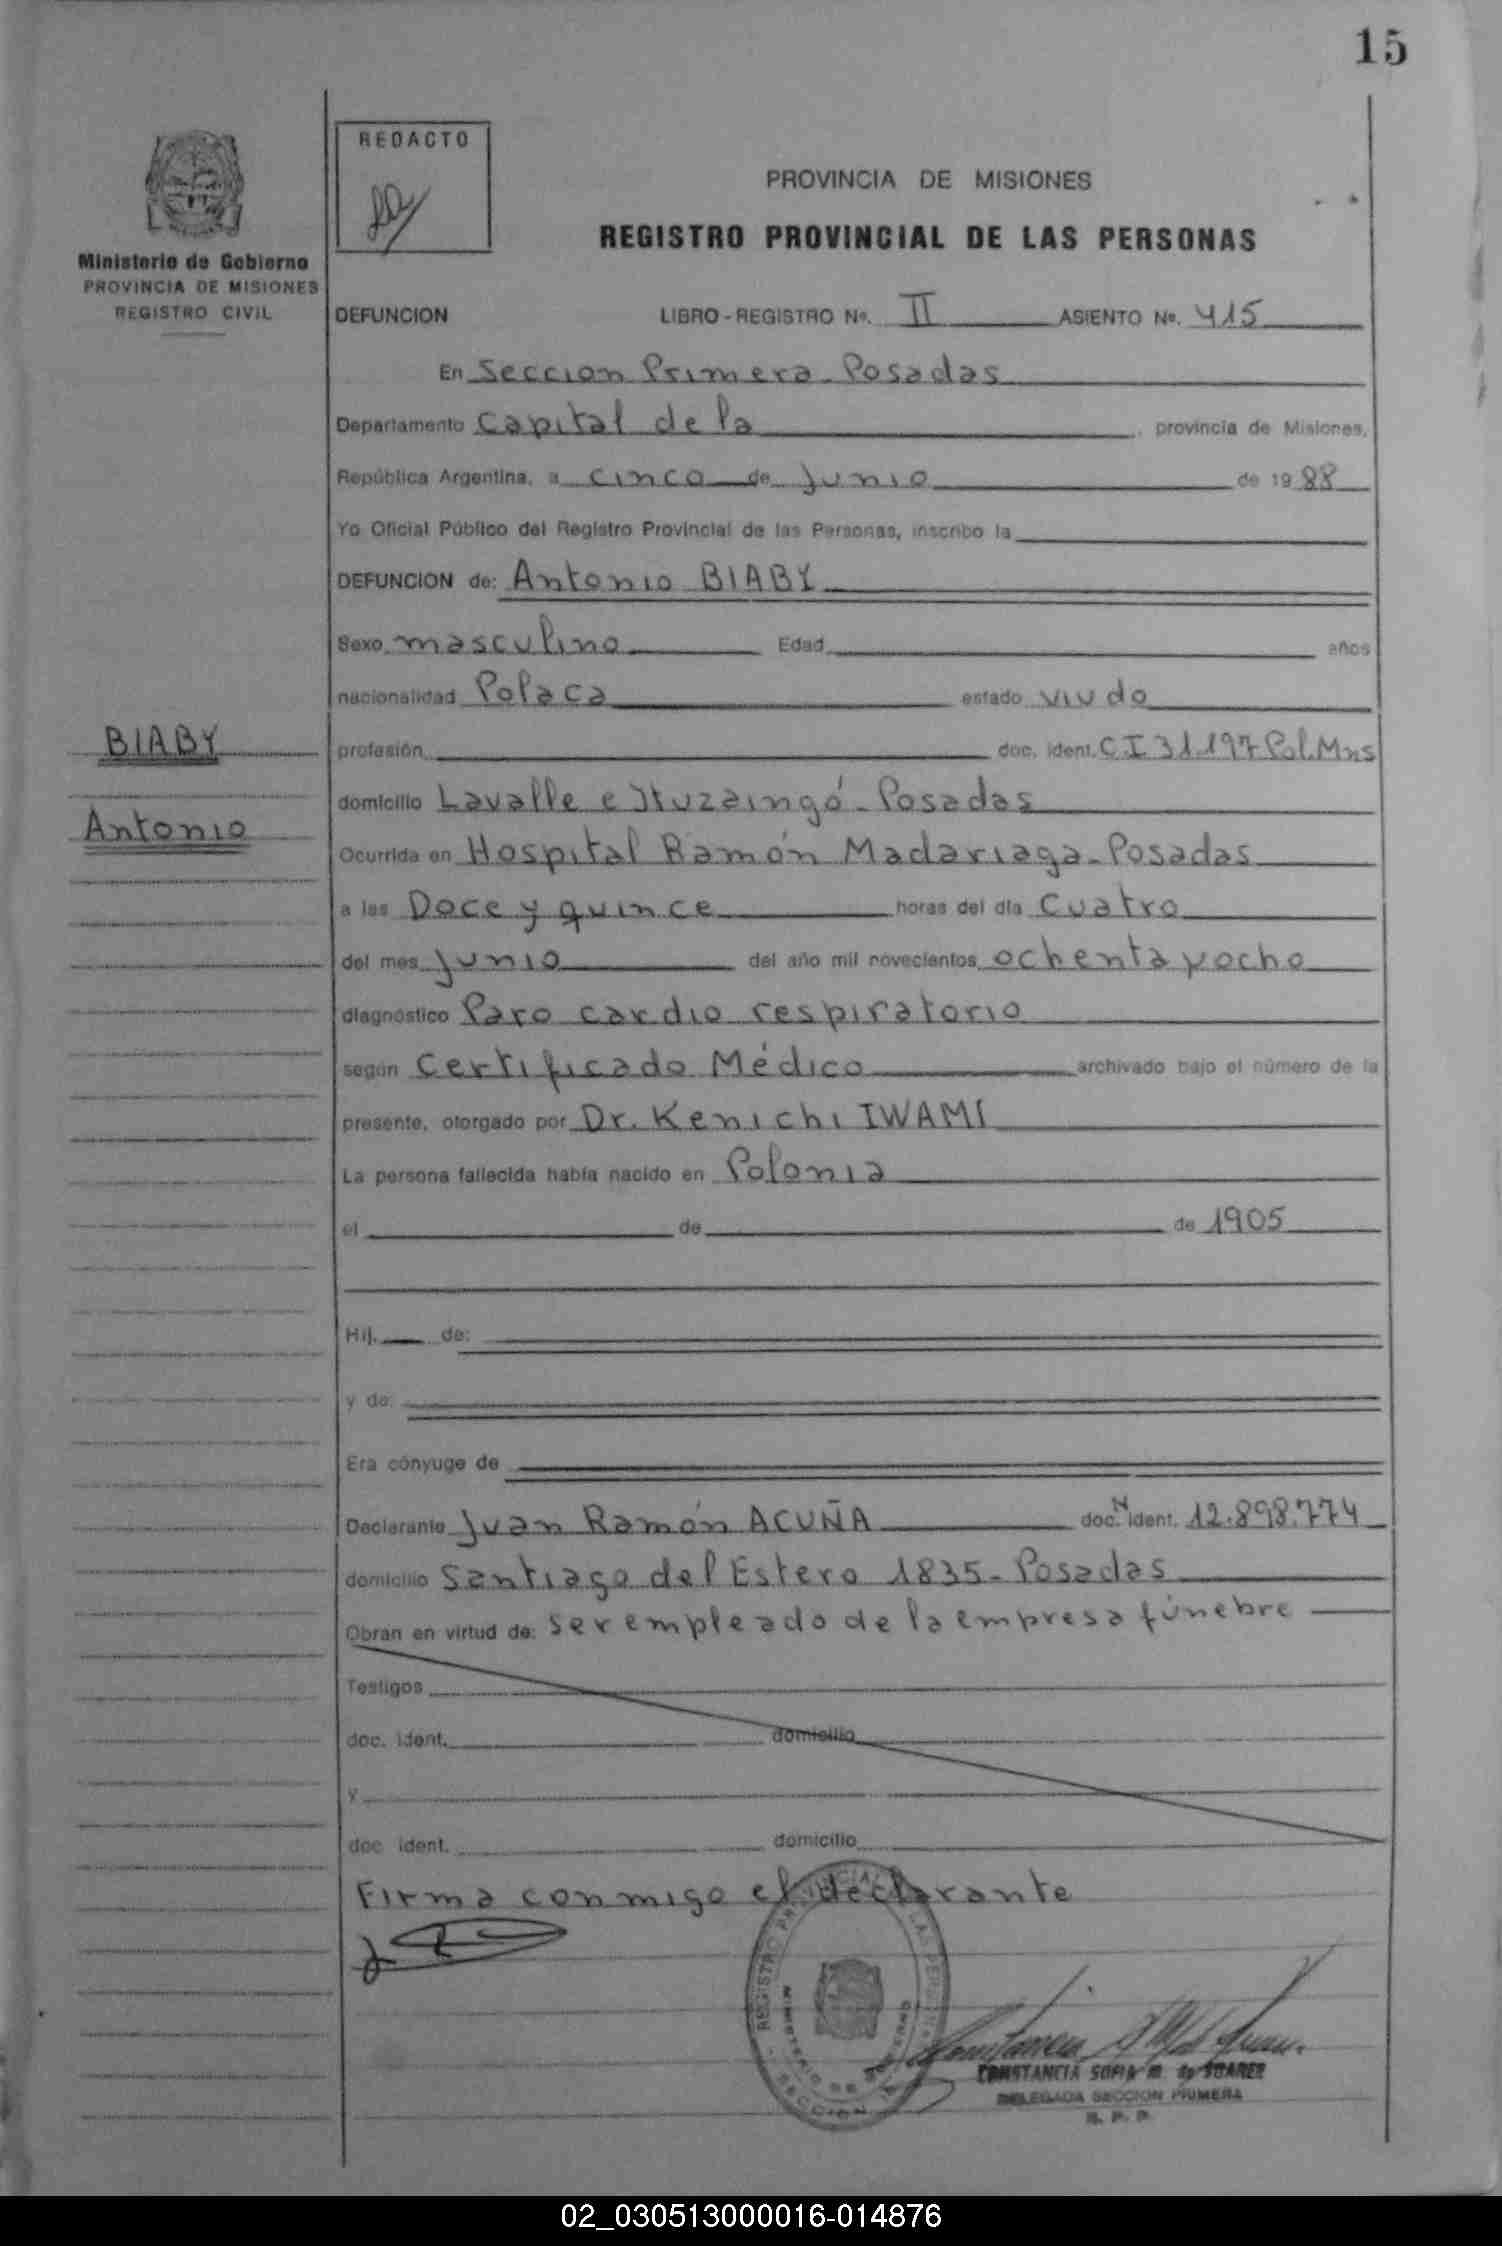 15
REDACTO
PROVINCIA DE MISIONES
REGISTRO PROVINCIAL DE LAS PERSONAS
Ministerio de Gobierno
PROVINCIA DE MISIONES
REGISTRO CIVIL
DEFUNCION LIBRO - REGISTRO Nº. II ASIENTO Nº. 415
En Seccion Primera - Posadas
Departamento Capital de la , provincia de Misiones,
República Argentina, a cinco de Junio de 19 88
Yo Oficial Público del Registro Provincial de las Personas, inscribo la
DEFUNCION de: Antonio BIABY
Sexo masculino Edad años
nacionalidad Polaca estado viudo
BIABY
profesión doc. ident. C I 31.197 Pol. Mns
domicilio Lavalle e Ituzaingó - Posadas
Antonio
Ocurrida en Hospital Ramón Madariaga - Posadas
a las Doce y quince horas del día Cuatro
del mes Junio del año mil novecientos ochenta y ocho
diagnóstico Paro cardio respiratorio
según Certificado Médico archivado bajo el número de la
presente, otorgado por Dr. Kenichi IWAMI
La persona fallecida había nacido en Polonia
el de de 1905
Hij. de:
y de:
Era cónyuge de
Declarante Juan Ramón ACUÑA doc. N ident. 12.898.774
domicilio Santiago del Estero 1835 - Posadas
Obran en virtud de: ser empleado de la empresa fúnebre
Testigos
doc. ident. domicilio
y
doc ident. domicilio
Firma conmigo el declarante
REGISTRO PROVINCIAL DE LAS PERSONAS
MINISTERIO DE GOBIERNO
SECCION
CONSTANCIA SOFIA M. de SUAREZ
DELEGADA SECCION PRIMERA
R. P. P.
02_030513000016-014876